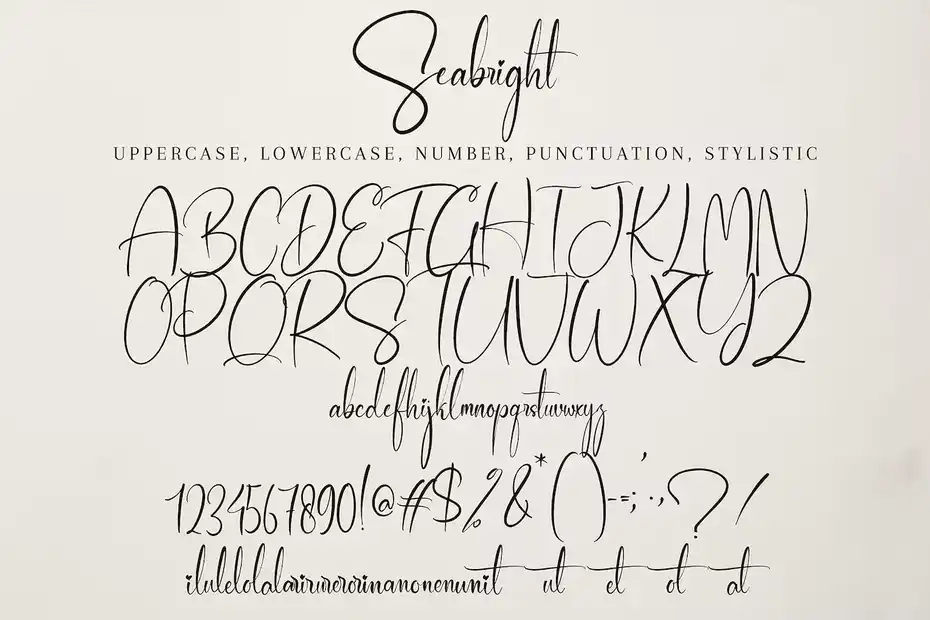 Seabright
UPPERCASE, LOWERCASE, NUMBER, PUNCTUATION, STYLISTIC
ABCDEFGHIJKLMN
OPQRSTUVWXYZ
abcdefhijklmnopqrstuvwxyz
1234567890!@#$%&*()-=;:.,'?/
ilulelolalarirurerorinanonenunit ut et ot at